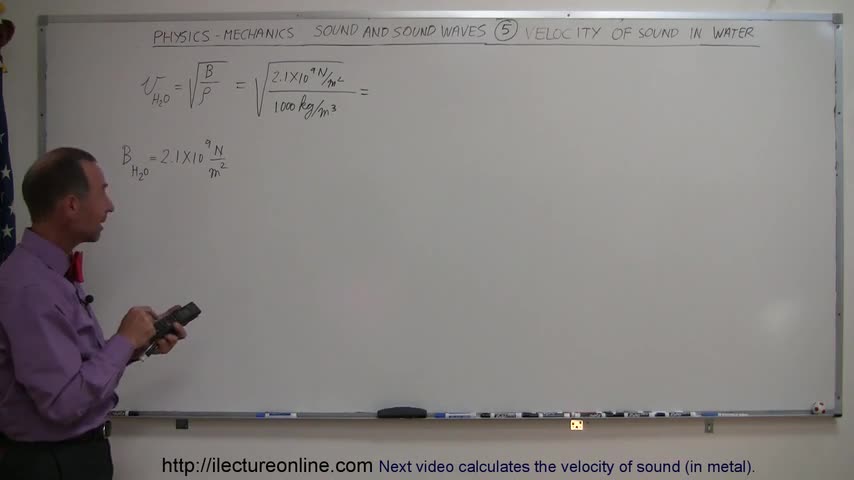 PHYSICS - MECHANICS SOUND AND SOUND WAVES ⑤ VELOCITY OF SOUND IN WATER
V_H₂O = √(B/ρ) = √(2.1 X 10⁹ N/m² / 1000 kg/m³) =
B_H₂O = 2.1 X 10⁹ N/m²
http://ilectureonline.com Next video calculates the velocity of sound (in metal).